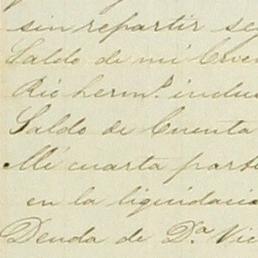 sin repartir se
Saldo de mi
Ric hermº. inclu
Saldo de Cuenta
Mi cuarta parte
en la liquidaci
Deuda de Dª Vic